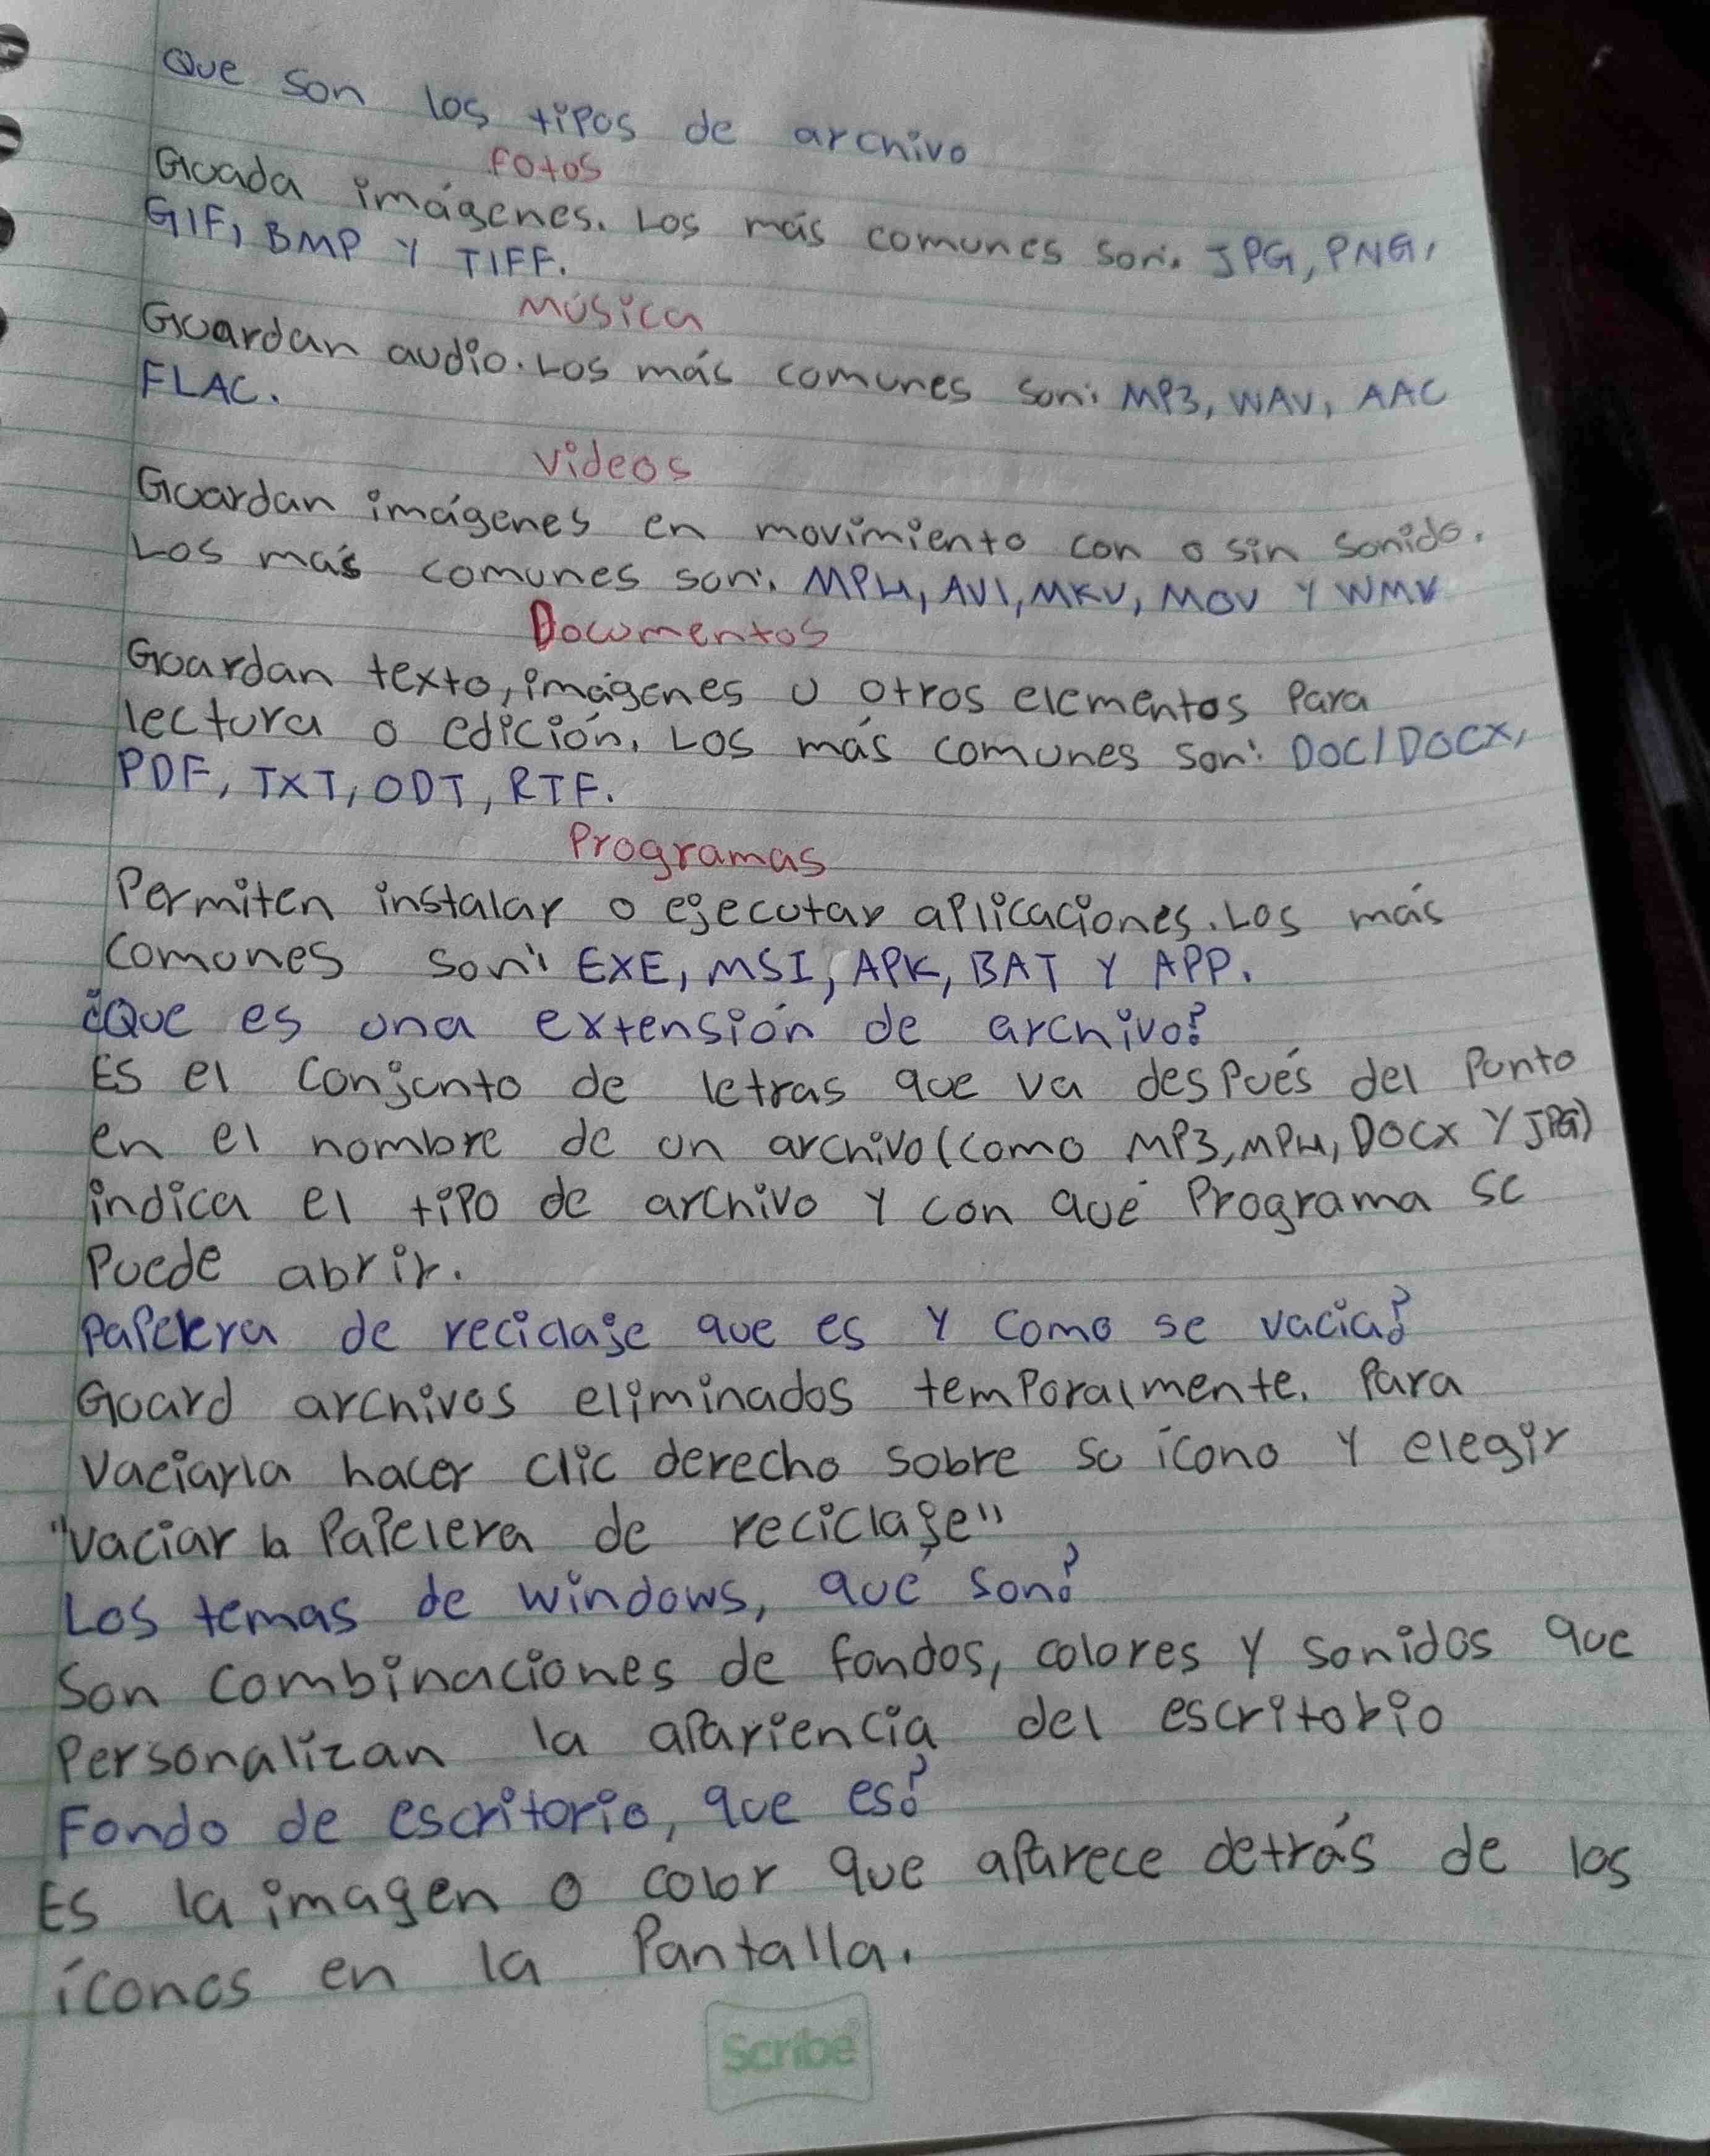 Que son los tipos de archivo
Fotos
Guada imágenes. Los más comunes son: JPG, PNG,
GIF, BMP Y TIFF.
Música
Guardan audio. Los más comunes son: MP3, WAV, AAC
FLAC.
Videos
Guardan imágenes en movimiento con o sin sonido.
Los más comunes son: MP4, AVI, MKV, MOV Y WMV
Documentos
Guardan texto, imágenes u otros elementos para
lectura o edición. Los más comunes son: DOC/DOCX,
PDF, TXT, ODT, RTF.
Programas
Permiten instalar o ejecutar aplicaciones. Los más
comunes son: EXE, MSI, APK, BAT Y APP.
¿Que es una extensión de archivo?
Es el conjunto de letras que va después del punto
en el nombre de un archivo (como MP3, MP4, DOCX Y JPG)
indica el tipo de archivo y con qué programa se
puede abrir.
Papelera de reciclaje que es y como se vacia?
Guard archivos eliminados temporalmente. Para
vaciarla hacer clic derecho sobre su ícono y elegir
"vaciar la Papelera de reciclaje"
Los temas de windows, qué son?
Son combinaciones de fondos, colores y sonidos que
personalizan la apariencia del escritorio
Fondo de escritorio, que es?
Es la imagen o color que aparece detrás de los
íconos en la pantalla.
Scribe